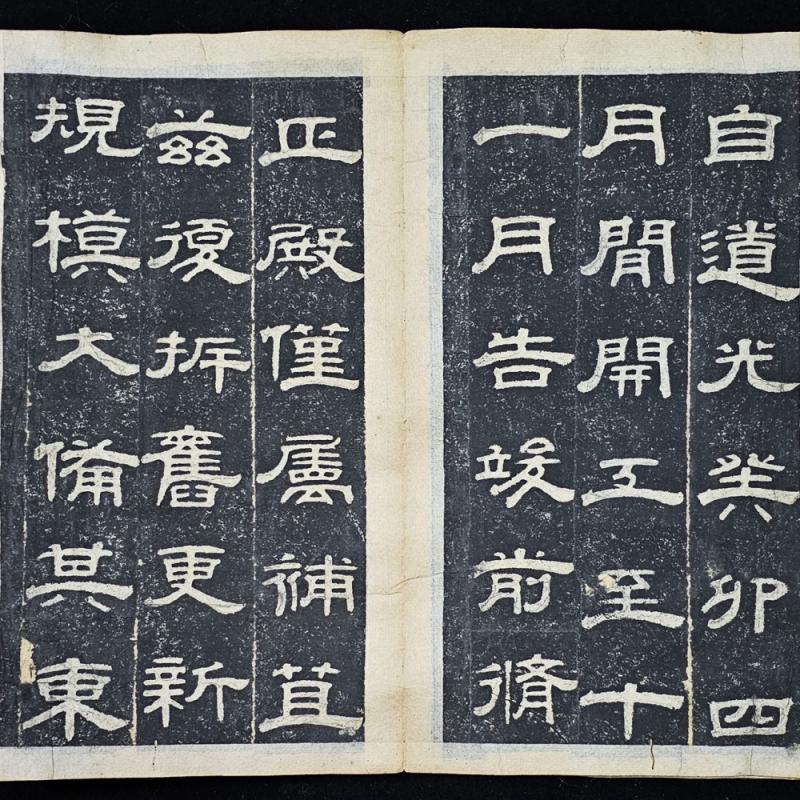 自道光癸卯四
月閒開工至十
一月告竣前脩
正殿僅屬補苴
茲復拆舊更新
規模大備其東